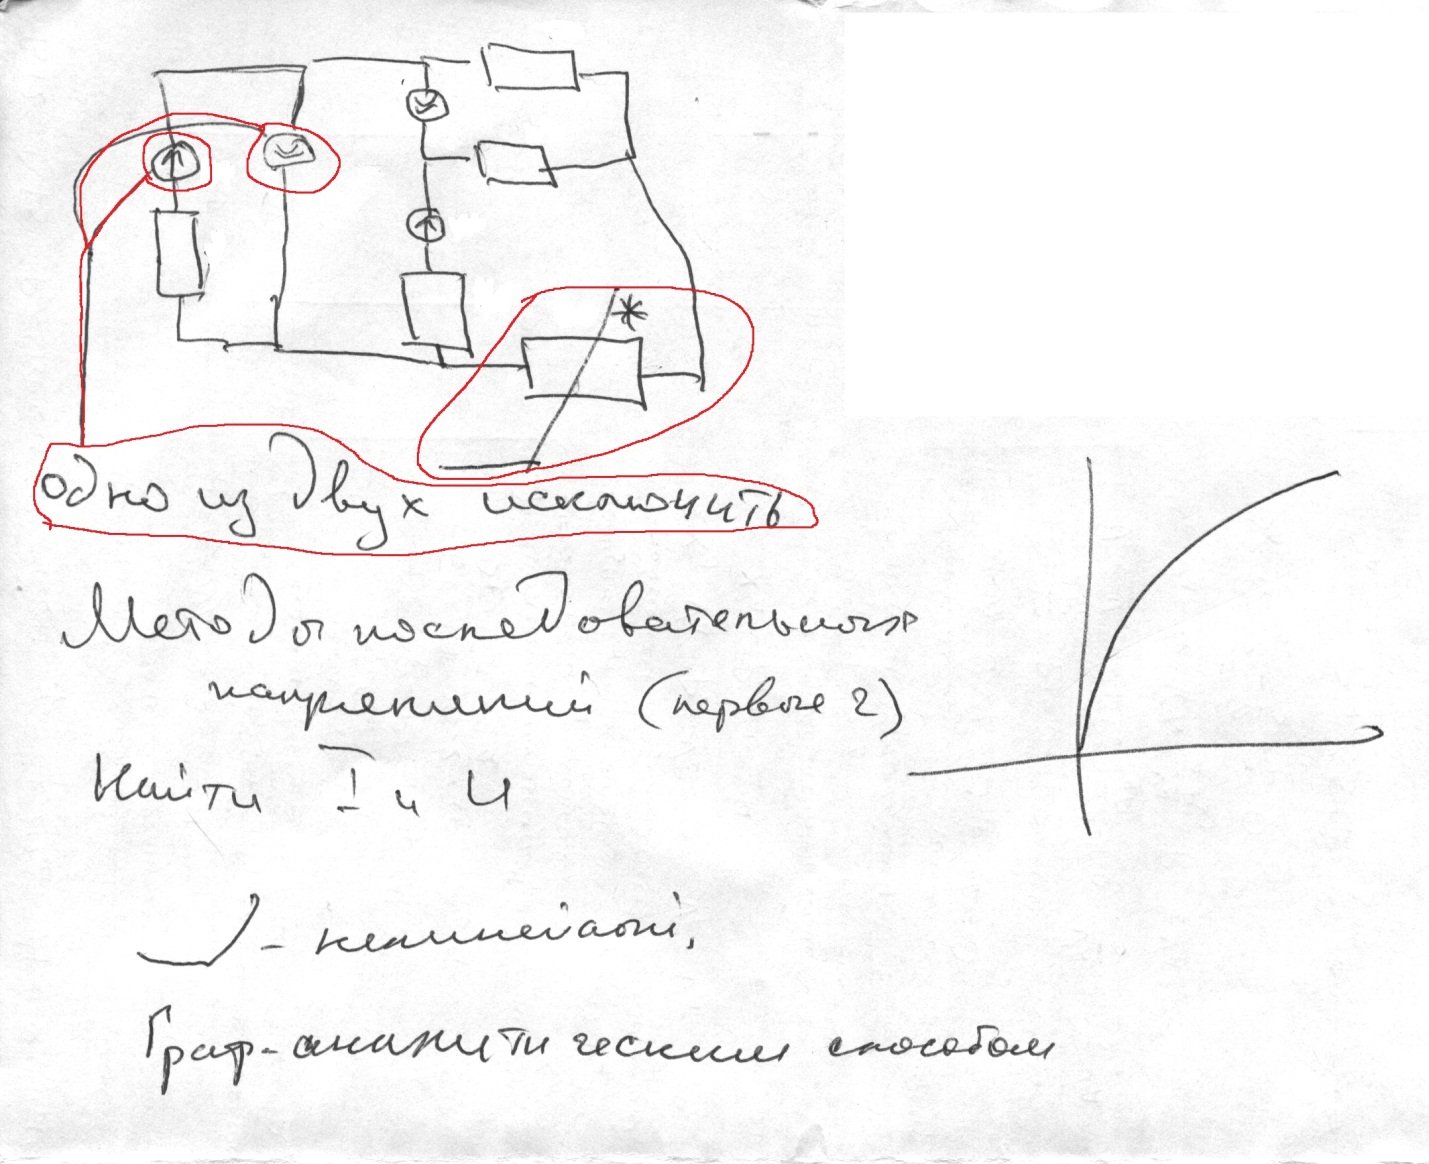 *
одно из двух исключить
Методы последовательных
напряжений (первые 2)
Найти I и U
- нелинейный,
Граф-аналитическим способом